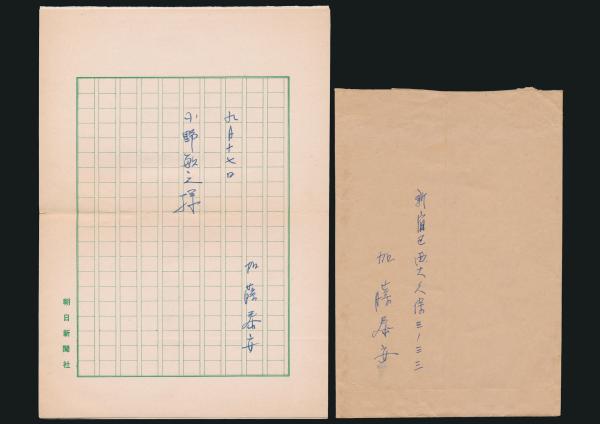 九月十七日
加藤泰安
小野敏之様
朝日新聞社
新宿区西大久保三ノ三三
加藤泰安